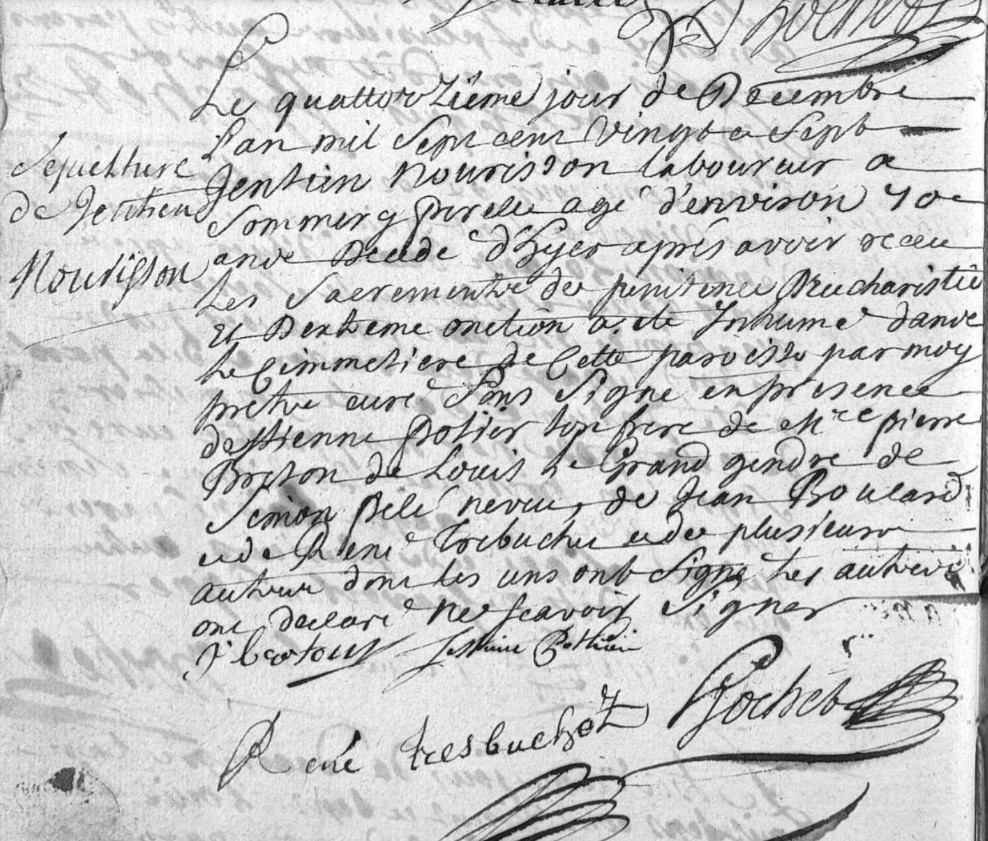 Le quattorzieme jour de Decembre
Lan mil sept cent vingt e sept
Sepulture
de Jentien
Nourisson
Jentien Nourisson laboureur a
Sommery agé d'environ 70
ans Decedé d'hyer aprés avoir receu
les Sacrements de penitence Deucharistie
Et Dextreme onction a eté Inhumé dans
le Cimmetiere de Cette paroisse par moy
pretre curé Sous Signé en presence
destienne Potier son frere de Mre pierre
Breton de Louis le Grand gendre de
Simon Pelé neveu, de Jean Boulard
e de René Trebuchet e de plusieurs
autres dont les uns ont Signé les autres
ont declaré ne scavoir Signer
René tresbuchet